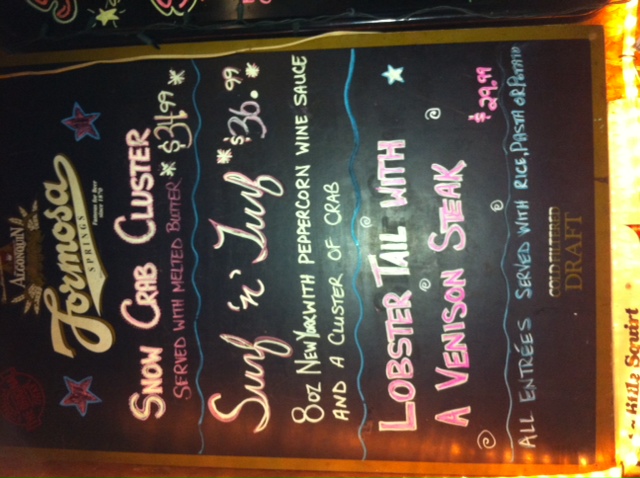 ALGONQUIN
Formosa
SPRINGS
Famous for Beer
since 1870
SNOW CRAB CLUSTER
SERVED WITH MELTED BUTTER * $34.99 *
Surf 'n' Turf * $36.99 *
8oz NEW YORK WITH PEPPERCORN WINE SAUCE
AND A CLUSTER OF CRAB
LOBSTER TAIL WITH
A VENISON STEAK
$29.99
ALL ENTRÉES SERVED WITH RICE, PASTA OR POTATO
COLD FILTERED
DRAFT
Squirt